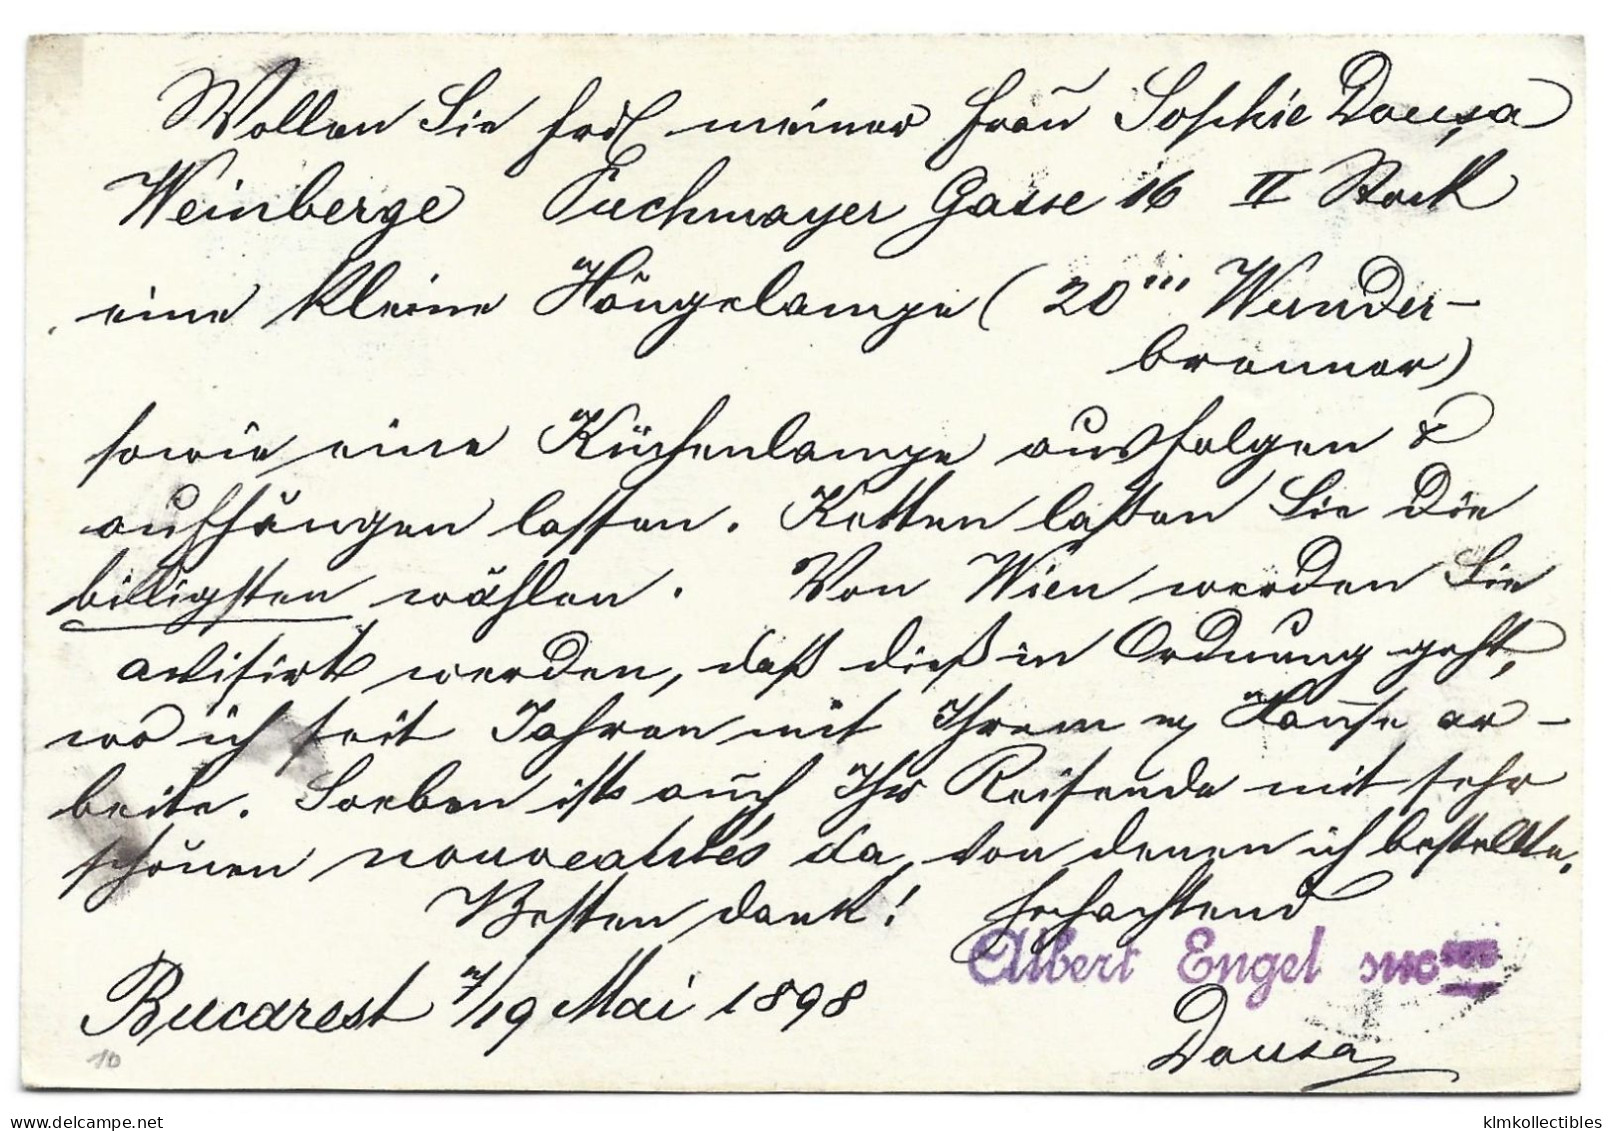 Wollen Sie frdl meiner Frau Sophie Dousa
Weinberge Puchmayer Gasse 16 II Stock
eine kleine Hängelampe (20''' Wunder-
brenner)
sowie eine Küchenlampe ausfolgen &
aufhängen lassen. Ketten lassen Sie die
billigsten wählen. Von Wien werden Sie
avisirt werden, daß dieß in Ordnung geht,
wo ich seit Jahren mit Ihrem Hause ar-
beite. Soeben ist auch Ihr Reisende mit sehr
schönen nouveautés da, von denen ich bestellte.
Besten dank! Hochachtend
Albert Engel succ
Bucarest 7/19 Mai 1898
Dousa
10
klmkollectibles.com